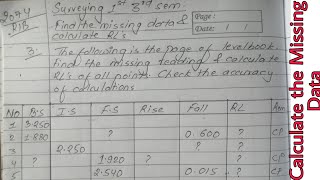 2074
DIB
Surveying 1st 3rd sem.
Find the missing data &
calculate RL's
Page:
Date: / /
3. The following is the page of levelbook.
Find the missing reading & calculate
RL's of all points. Check the accuracy
of calculations
No B.S I.S F.S Rise Fall RL
1 3.250 ?
2 1.880 ? 0.600 ?
3 2.250 ? ?
4 ? 1.920 ? ?
5 2.540 0.015 ?
Calculate the Missing
Data